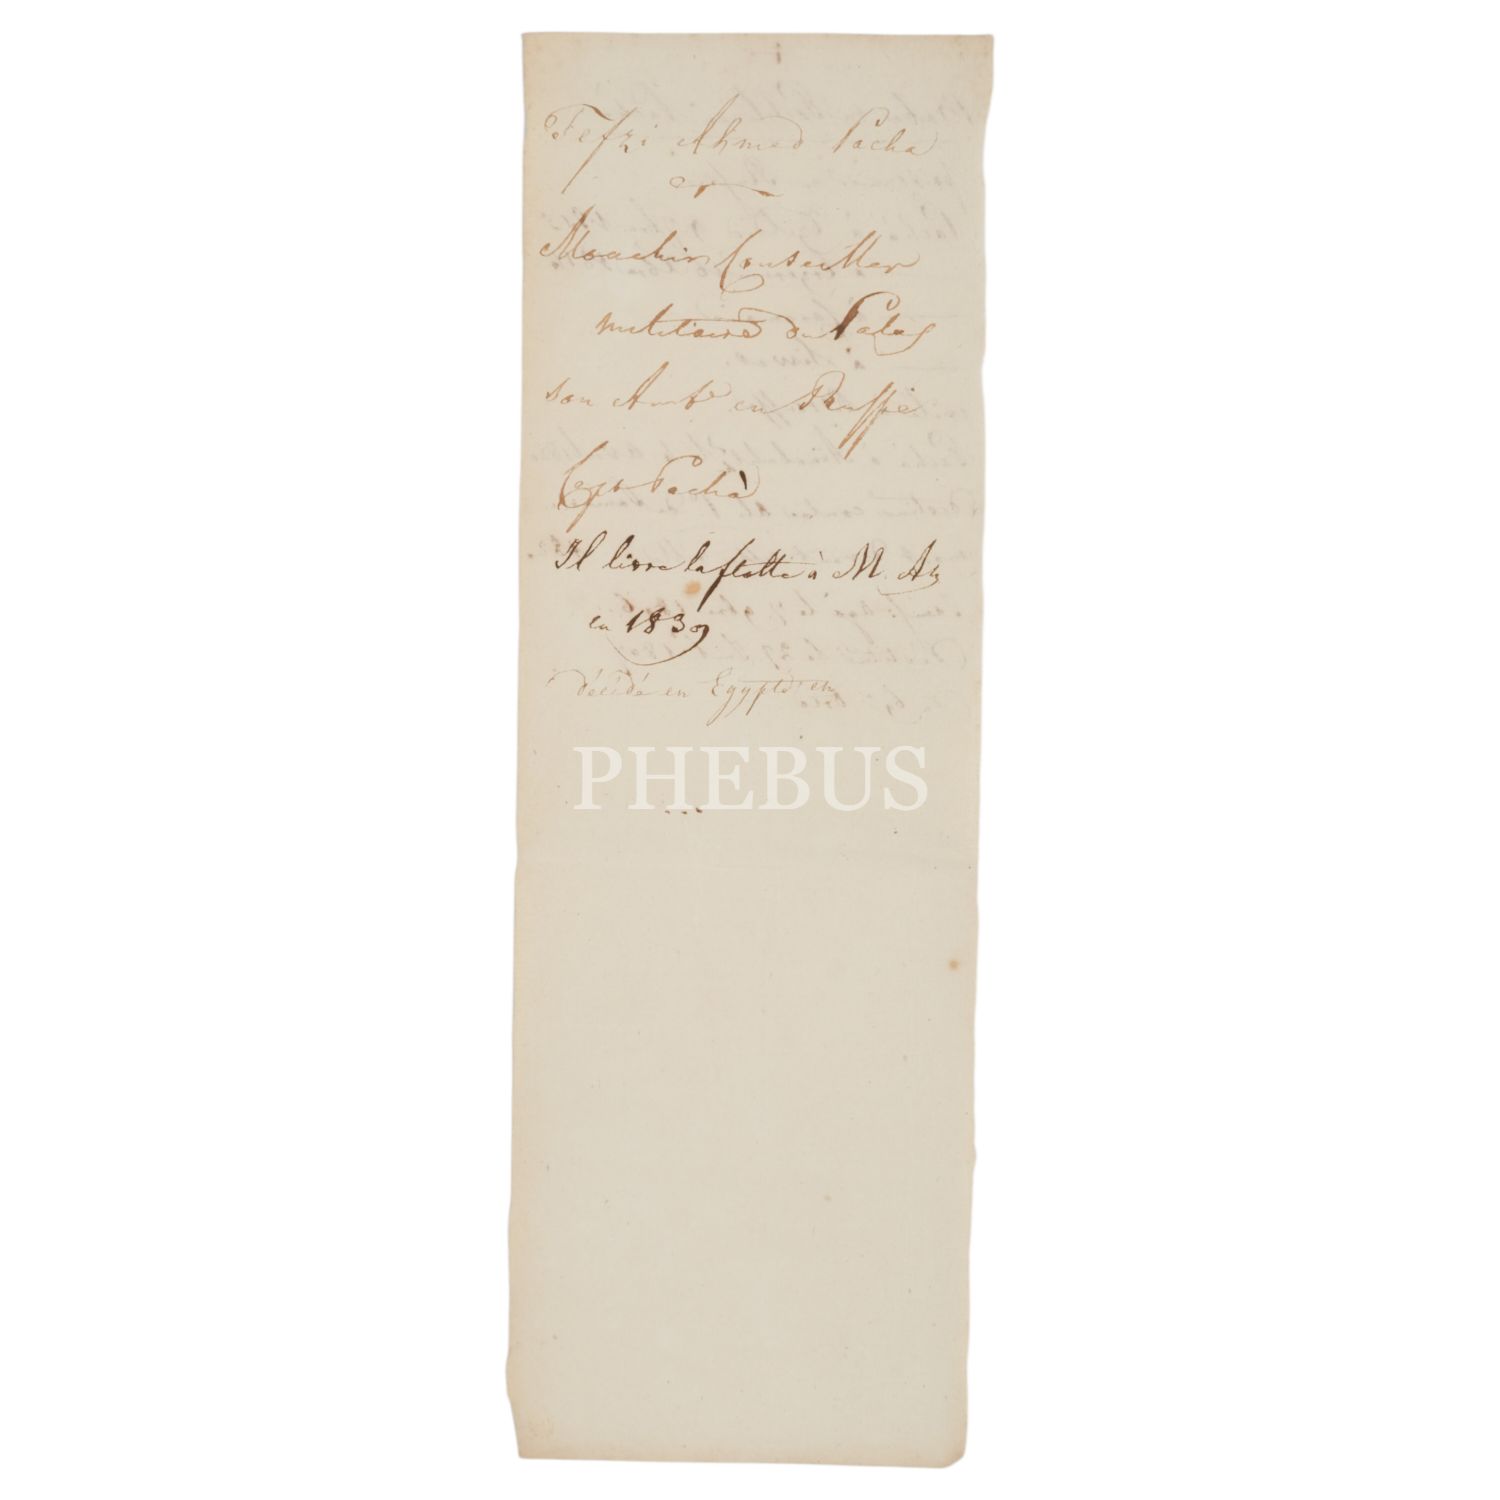 Fefzi Ahmed Pacha
Moachir Conseiller
militaire du Palais
son Ambr en Russie
Capn Pachà
Il livre la flotte à M. Aly
en 1839
décédé en Egypte en
PHEBUS